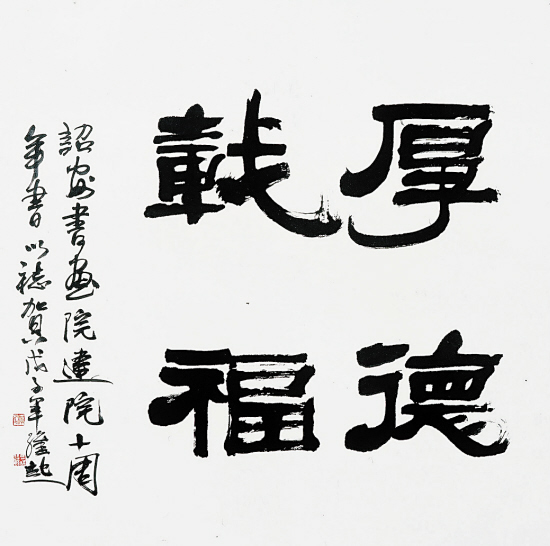 厚德
載福
詔安書畫院建院十周
年書以誌賀戊子年隆起